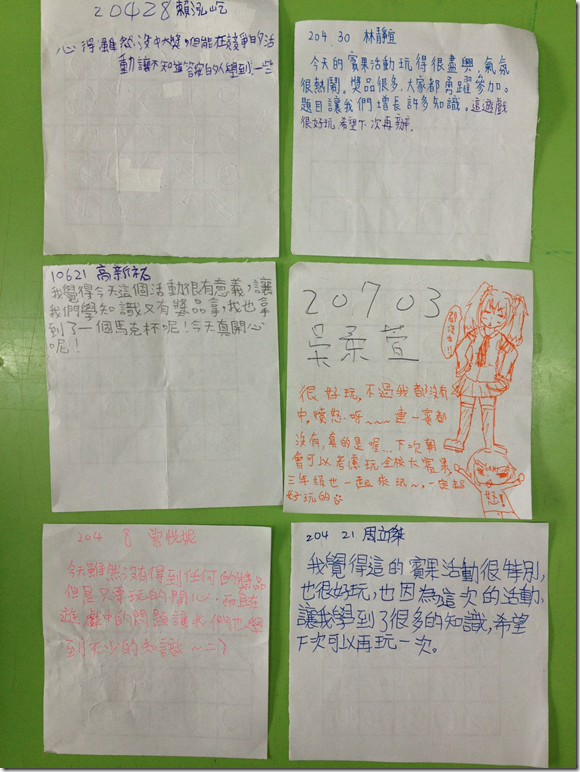 20428 賴泓屹
心得雖然沒中大獎,但能在競爭日外活
動讓不知道答案的人學到一些
204 30 林靜萱
今天的賓果活動玩得很盡興,氣氛
很熱鬧。獎品很多,大家都勇躍參加。
題目讓我們增長許多知識。這遊戲
很好玩,希望下次再辦。
10621 高新祐
我覺得今天這個活動很有意義,讓
我們學知識又有獎品拿,我也拿
到了一個馬克杯呢!今天真開心
呢!!
20703
吳柔萱
很好玩,不過我都沒有
中,憤怒呀~~~連一賓都
沒有,真的是喔...下次朝
會可以考慮玩全校大賓果,
三年級也一起來玩~,一定超
好玩的
204 8 曾悅妮
今天雖然沒有得到任何的獎品
但是只要玩的開心,而且在
遊戲中的問題讓我們也學
到不少的知識~
204 21 周立傑
我覺得這的賓果活動很特別,
也很好玩,也因為這次的活動,
讓我學到了很多的知識,希望
下次可以再玩一次。